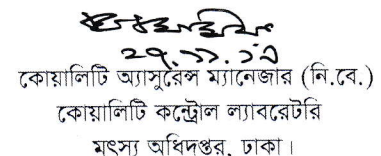 ২৭.১১.১৩
কোয়ালিটি অ্যাসুরেন্স ম্যানেজার (নি.বে.)
কোয়ালিটি কন্ট্রোল ল্যাবরেটরি
মৎস্য অধিদপ্তর, ঢাকা।